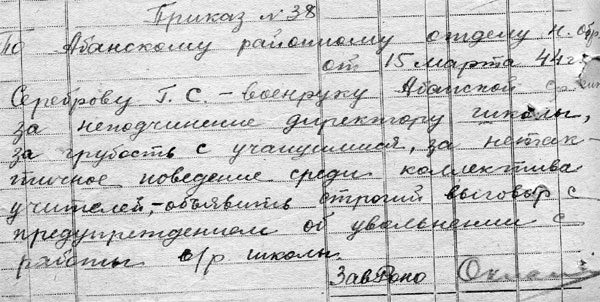 Приказ № 38
по Абанскому районному отделу н. обр.
от 15 марта 44 г.
Сереброву Г. С. – военруку Абанской
за неподчинение директору школы,
за грубость с учащимися, за нетак-
тичное поведение среди коллектива
учителей, – объявить строгий выговор с
предупреждением об увольнении с
работы в/р школы
Зав Роно